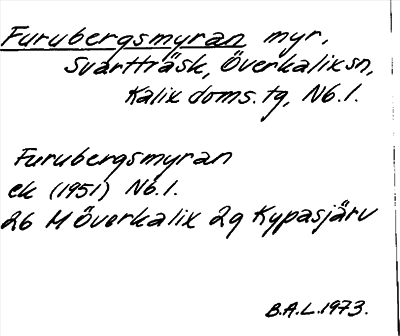 Furubergsmyran myr,
Svartträsk, Överkalix sn,
Kalix doms. tg, Nb. l.
Furubergsmyran
ek (1951) Nb. l.
26 M Överkalix 2g Kypasjärv
B.A.L. 1973.